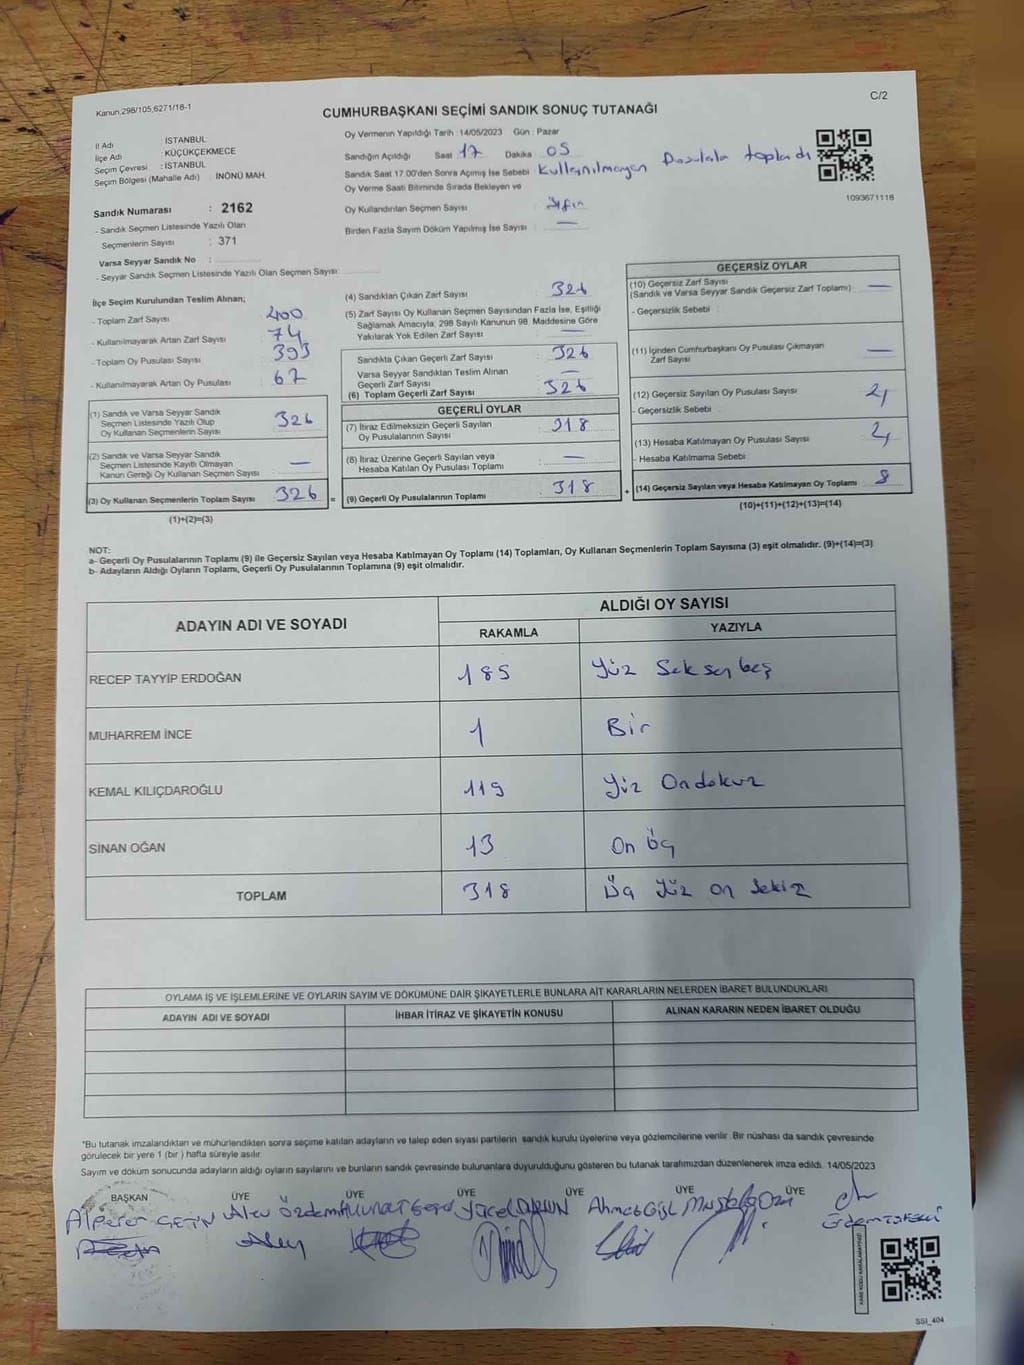 Kanun,298/105,6271/18-1
C/2
CUMHURBAŞKANI SEÇİMİ SANDIK SONUÇ TUTANAĞI
İl Adı : İSTANBUL
İlçe Adı : KÜÇÜKÇEKMECE
Seçim Çevresi : İSTANBUL
Seçim Bölgesi (Mahalle Adı) : İNÖNÜ MAH.
Sandık Numarası : 2162
- Sandık Seçmen Listesinde Yazılı Olan
Seçmenlerin Sayısı : 371
Varsa Seyyar Sandık No :
- Seyyar Sandık Seçmen Listesinde Yazılı Olan Seçmen Sayısı
Oy Vermenin Yapıldığı Tarih : 14/05/2023 Gün : Pazar
Sandığın Açıldığı Saat 17 Dakika : 05
Sandık Saat 17.00'den Sonra Açımış İse Sebebi Kullanılmayan Pusulala topladı
Oy Verme Saati Bitiminde Sırada Bekleyen ve
Oy Kullandırılan Seçmen Sayısı : Sıfır
Birden Fazla Sayım Döküm Yapılmış İse Sayısı : —
1093671118
İlçe Seçim Kurulundan Teslim Alınan;
- Toplam Zarf Sayısı : 400
- Kullanılmayarak Artan Zarf Sayısı : 74
- Toplam Oy Pusulası Sayısı : 393
- Kullanılmayarak Artan Oy Pusulası : 67
(1) Sandık ve Varsa Seyyar Sandık
Seçmen Listesinde Yazılı Olup
Oy Kullanan Seçmenlerin Sayısı : 326
(2) Sandık ve Varsa Seyyar Sandık
Seçmen Listesinde Kayıtlı Olmayan
Kanun Gereği Oy Kullanan Seçmen Sayısı : —
(3) Oy Kullanan Seçmenlerin Toplam Sayısı : 326 =
(1)+(2)=(3)
(4) Sandıktan Çıkan Zarf Sayısı : 326
(5) Zarf Sayısı Oy Kullanan Seçmen Sayısından Fazla İse, Eşitliği
Sağlamak Amacıyla, 298 Sayılı Kanunun 98. Maddesine Göre
Yakılarak Yok Edilen Zarf Sayısı : —
Sandıkta Çıkan Geçerli Zarf Sayısı : 326
Varsa Seyyar Sandıktan Teslim Alınan
Geçerli Zarf Sayısı : —
(6) Toplam Geçerli Zarf Sayısı : 326
GEÇERLİ OYLAR
(7) İtiraz Edilmeksizin Geçerli Sayılan
Oy Pusulalarının Sayısı : 318
(8) İtiraz Üzerine Geçerli Sayılan veya
Hesaba Katılan Oy Pusulası Toplamı : —
(9) Geçerli Oy Pusulalarının Toplamı : 318 +
GEÇERSİZ OYLAR
(10) Geçersiz Zarf Sayısı
(Sandık ve Varsa Seyyar Sandık Geçersiz Zarf Toplamı) : —
- Geçersizlik Sebebi :
(11) İçinden Cumhurbaşkanı Oy Pusulası Çıkmayan
Zarf Sayısı : —
(12) Geçersiz Sayılan Oy Pusulası Sayısı : 4
- Geçersizlik Sebebi :
(13) Hesaba Katılmayan Oy Pusulası Sayısı : 4
- Hesaba Katılmama Sebebi :
(14) Geçersiz Sayılan veya Hesaba Katılmayan Oy Toplamı : 8
(10)+(11)+(12)+(13)=(14)
NOT:
a- Geçerli Oy Pusulalarının Toplamı (9) ile Geçersiz Sayılan veya Hesaba Katılmayan Oy Toplamı (14) Toplamları, Oy Kullanan Seçmenlerin Toplam Sayısına (3) eşit olmalıdır. (9)+(14)=(3)
b- Adayların Aldığı Oyların Toplamı, Geçerli Oy Pusulalarının Toplamına (9) eşit olmalıdır.
ADAYIN ADI VE SOYADI
ALDIĞI OY SAYISI
RAKAMLA YAZIYLA
RECEP TAYYİP ERDOĞAN 185 Yüz Seksen beş
MUHARREM İNCE 1 Bir
KEMAL KILIÇDAROĞLU 119 Yüz Ondokuz
SİNAN OĞAN 13 On üç
TOPLAM 318 Üç Yüz on sekiz
OYLAMA İŞ VE İŞLEMLERİNE VE OYLARIN SAYIM VE DÖKÜMÜNE DAİR ŞİKAYETLERLE BUNLARA AİT KARARLARIN NELERDEN İBARET BULUNDUKLARI
ADAYIN ADI VE SOYADI İHBAR İTİRAZ VE ŞİKAYETİN KONUSU ALINAN KARARIN NEDEN İBARET OLDUĞU
*Bu tutanak imzalandıktan ve mühürlendikten sonra seçime katılan adayların ve talep eden siyasi partilerin sandık kurulu üyelerine veya gözlemcilerine verilir. Bir nüshası da sandık çevresinde
görülecek bir yere 1 (bir ) hafta süreyle asılır.
Sayım ve döküm sonucunda adayların aldığı oyların sayılarını ve bunların sandık çevresinde bulunanlara duyurulduğunu gösteren bu tutanak tarafımızdan düzenlenerek imza edildi. 14/05/2023
BAŞKAN ÜYE ÜYE ÜYE ÜYE ÜYE ÜYE
Alperen ÇETİN Alev Özdemir Yücel Ahmet Mustafa
SSİ_404